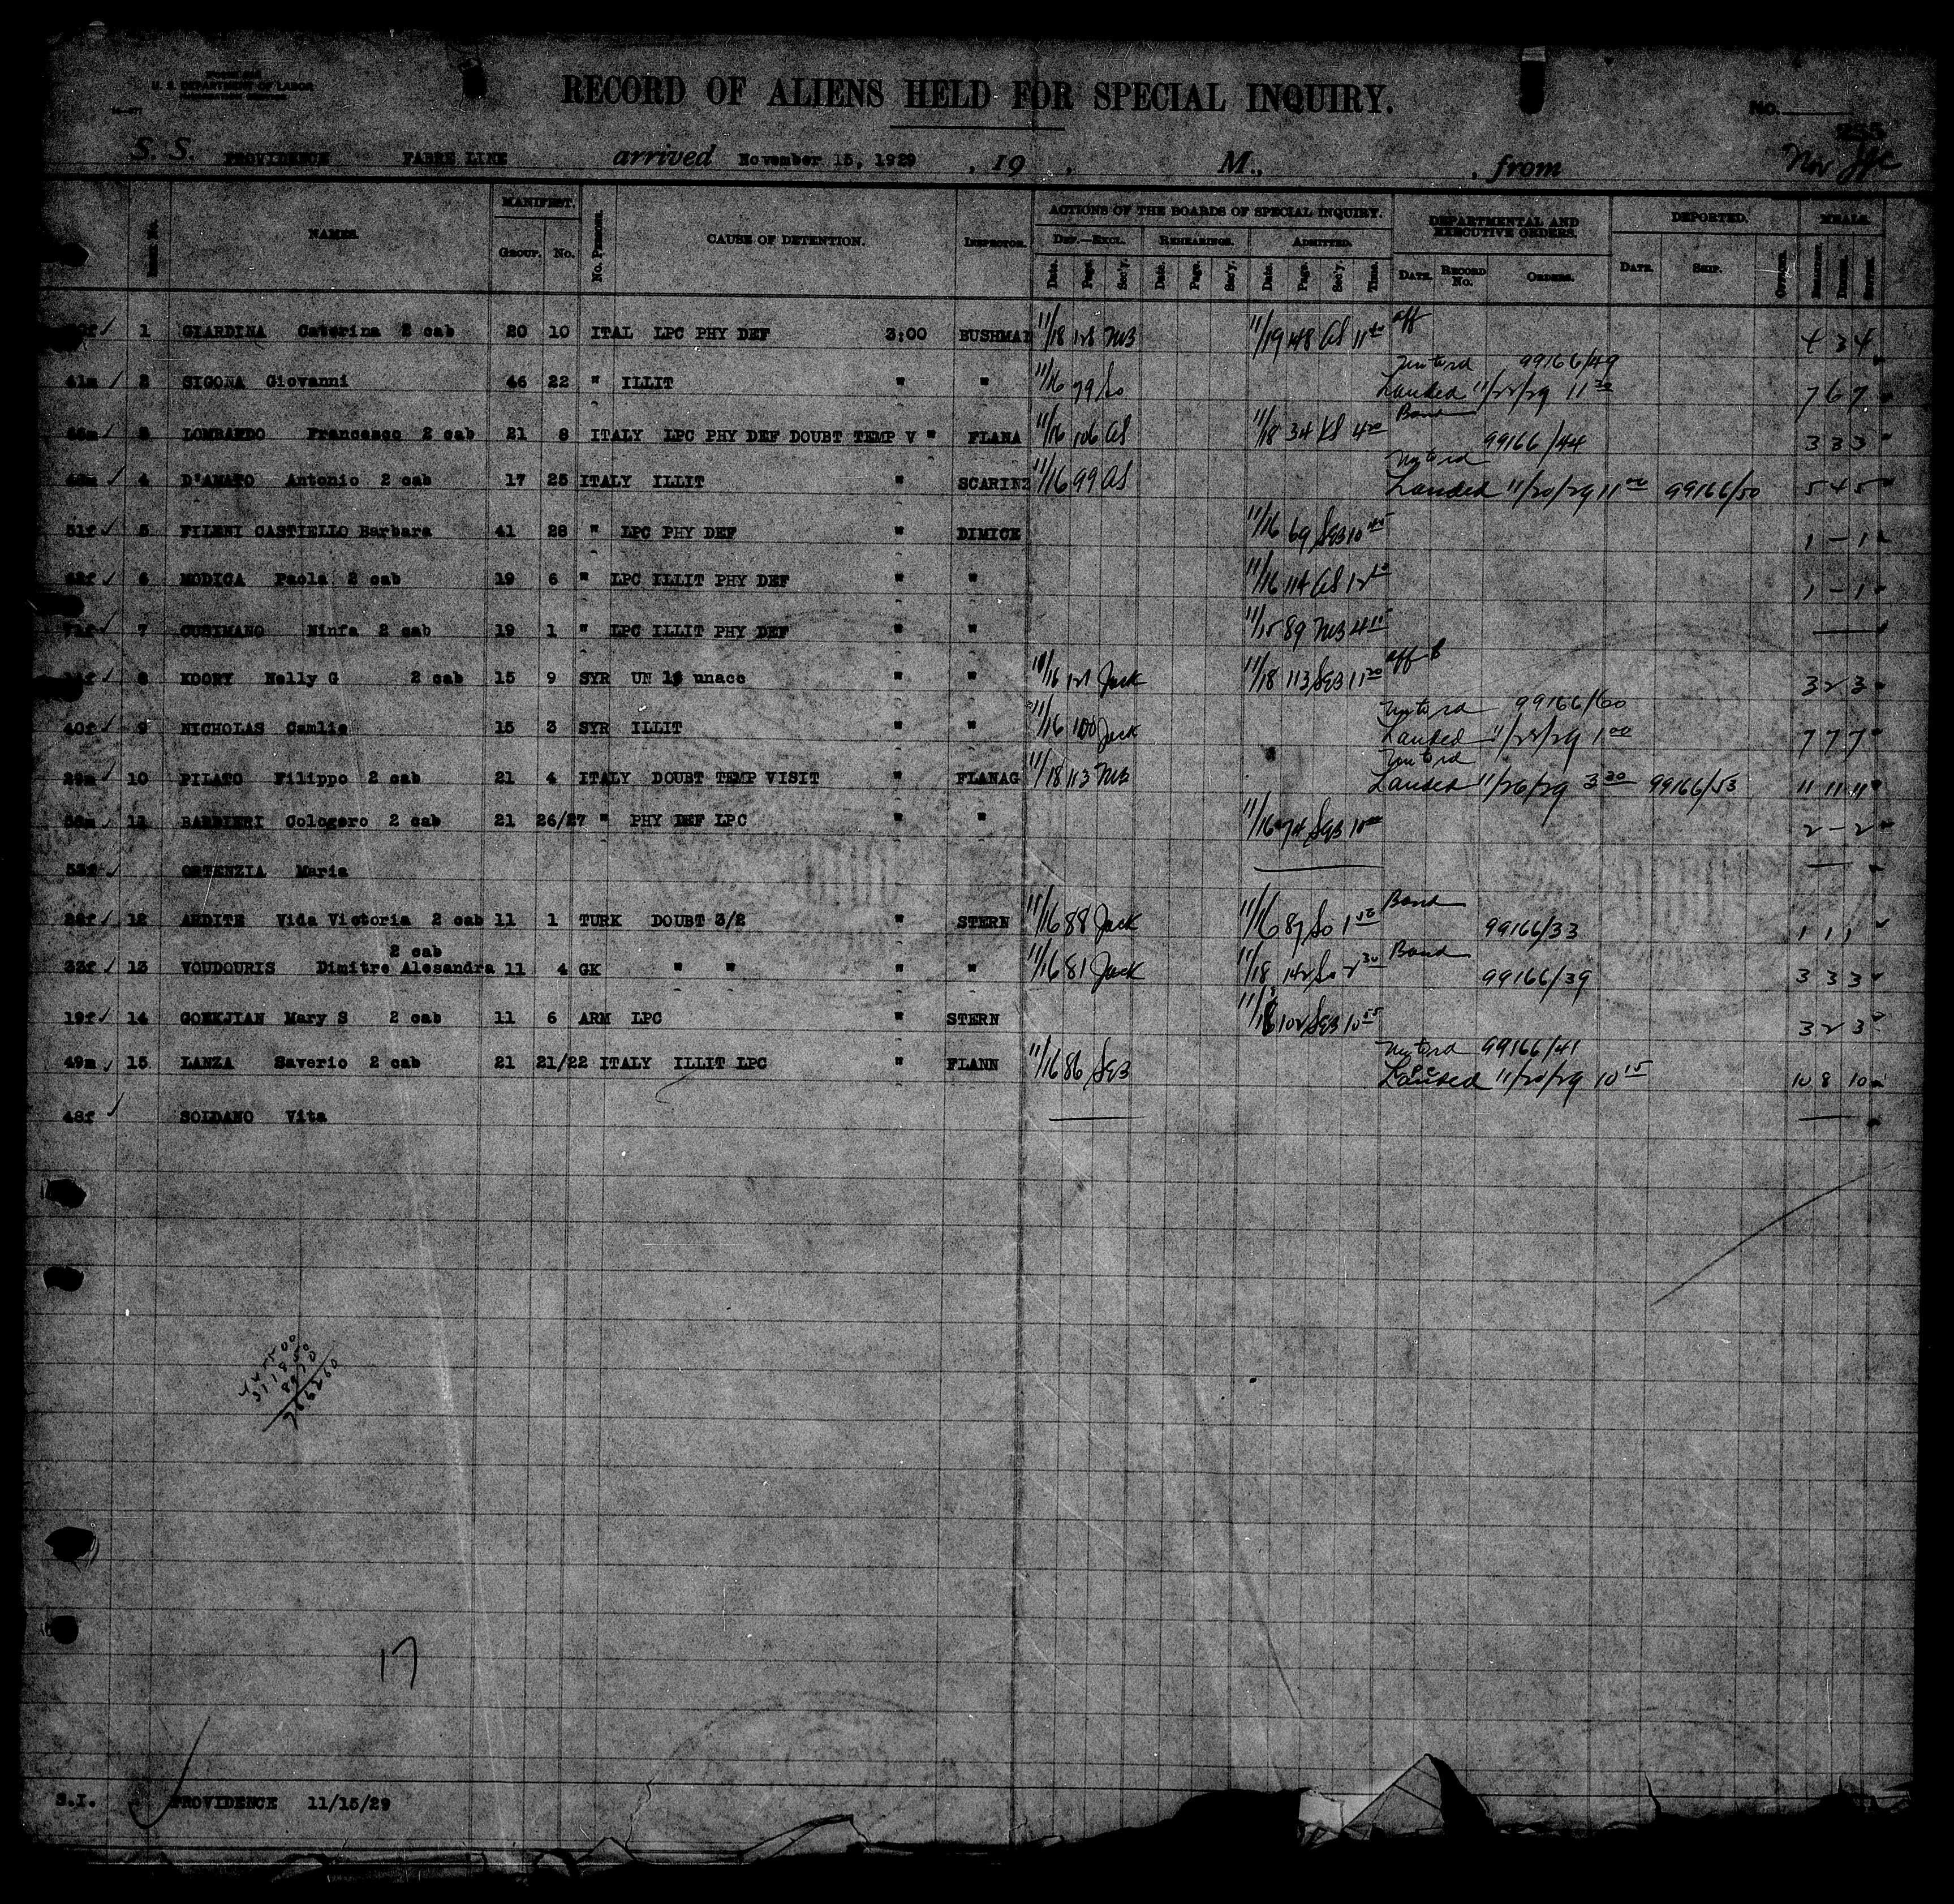 U. S. DEPARTMENT OF LABOR
RECORD OF ALIENS HELD FOR SPECIAL INQUIRY.
No.
S. S. PROVIDENCE FABRE LINE arrived November 15, 1929 , 19 , M., , from
MANIFEST. ACTIONS OF THE BOARDS OF SPECIAL INQUIRY. DEPARTMENTAL AND EXECUTIVE ORDERS. DEPORTED. MEALS.
NAMES. GROUP. No. No. Persons. CAUSE OF DETENTION. INSPECTOR. DEF.—EXCL. REHEARINGS. ADMITTED.
Date. Page. Sec'y. Date. Page. Sec'y. Date. Page. Sec'y. Time. DATE. RECORD No. ORDERS. DATE. SHIP. Breakfast. Dinner. Supper.
1 GIARDINA Caterina 2 cab 20 10 ITAL LPC PHY DEF 3:00 BUSHMAN 11/18 128 MB 11/19 148 11 40 aff 4 3 4
99166/49
41m 2 SIGONA Giovanni 46 22 " ILLIT " " 11/16 79 So Landed 11/22/29 11 30 7 6 7
Bond
3 LOMBARDO Francesco 2 cab 21 8 ITALY LPC PHY DEF DOUBT TEMP V " FLANA 11/16 106 11/18 34 4 20 99166/44 3 3 3
4 D'AMATO Antonio 2 cab 17 25 ITALY ILLIT " SCARINZ 11/16 99 Landed 11/20/29 11 00 99166/50 5 4 5
51f 5 FILENI CASTIELLO Barbara 41 28 " LPC PHY DEF " DIMICE 11/16 69 SEB 10 45 1 - 1
6 MODICA Paola 2 cab 19 6 " LPC ILLIT PHY DEF " " 11/16 114 1 - 1
7 CUSIMANO Ninfa 2 cab 19 1 " LPC ILLIT PHY DEF " " 11/15 89 MB 4 15
8 KOORY Nelly G 2 cab 15 9 SYR UN unacc " " 11/16 121 Jack 11/18 113 SEB 11 20 aff 3 2 3
99166/60
40f 9 NICHOLAS Camlie 15 3 SYR ILLIT " " 11/16 100 Jack Landed 1 00 7 7 7
29m 10 PILATO Filippo 2 cab 21 4 ITALY DOUBT TEMP VISIT " FLANAG 11/18 113 MB Landed 11/26/29 3 30 99166/53 11 11 11
11 BARBIERI Cologero 2 cab 21 26/27 " PHY DEF LPC " " 11/16 74 SEB 10 00 2 - 2
53f ORTENZIA Maria
12 ARDITE Vida Victoria 2 cab 11 1 TURK DOUBT 3/2 " STERN 11/16 88 Jack 11/16 87 So 1 50 Bond 99166/33 1 1 1
2 cab
33f 13 VOUDOURIS Dimitre Alesandra 11 4 GK " " " " 11/16 81 Jack 11/18 142 So 2 30 Bond 99166/39 3 3 3
19f 14 GOEKJIAN Mary S 2 cab 11 6 ARM LPC " STERN 11/18 102 SEB 10 55 3 2 3
99166/41
49m 15 LANZA Saverio 2 cab 21 21/22 ITALY ILLIT LPC " FLANN 11/16 86 SEB Landed 11/20/29 10 15 10 8 10
48f SOLDANO Vita
17
S.I. PROVIDENCE 11/15/29